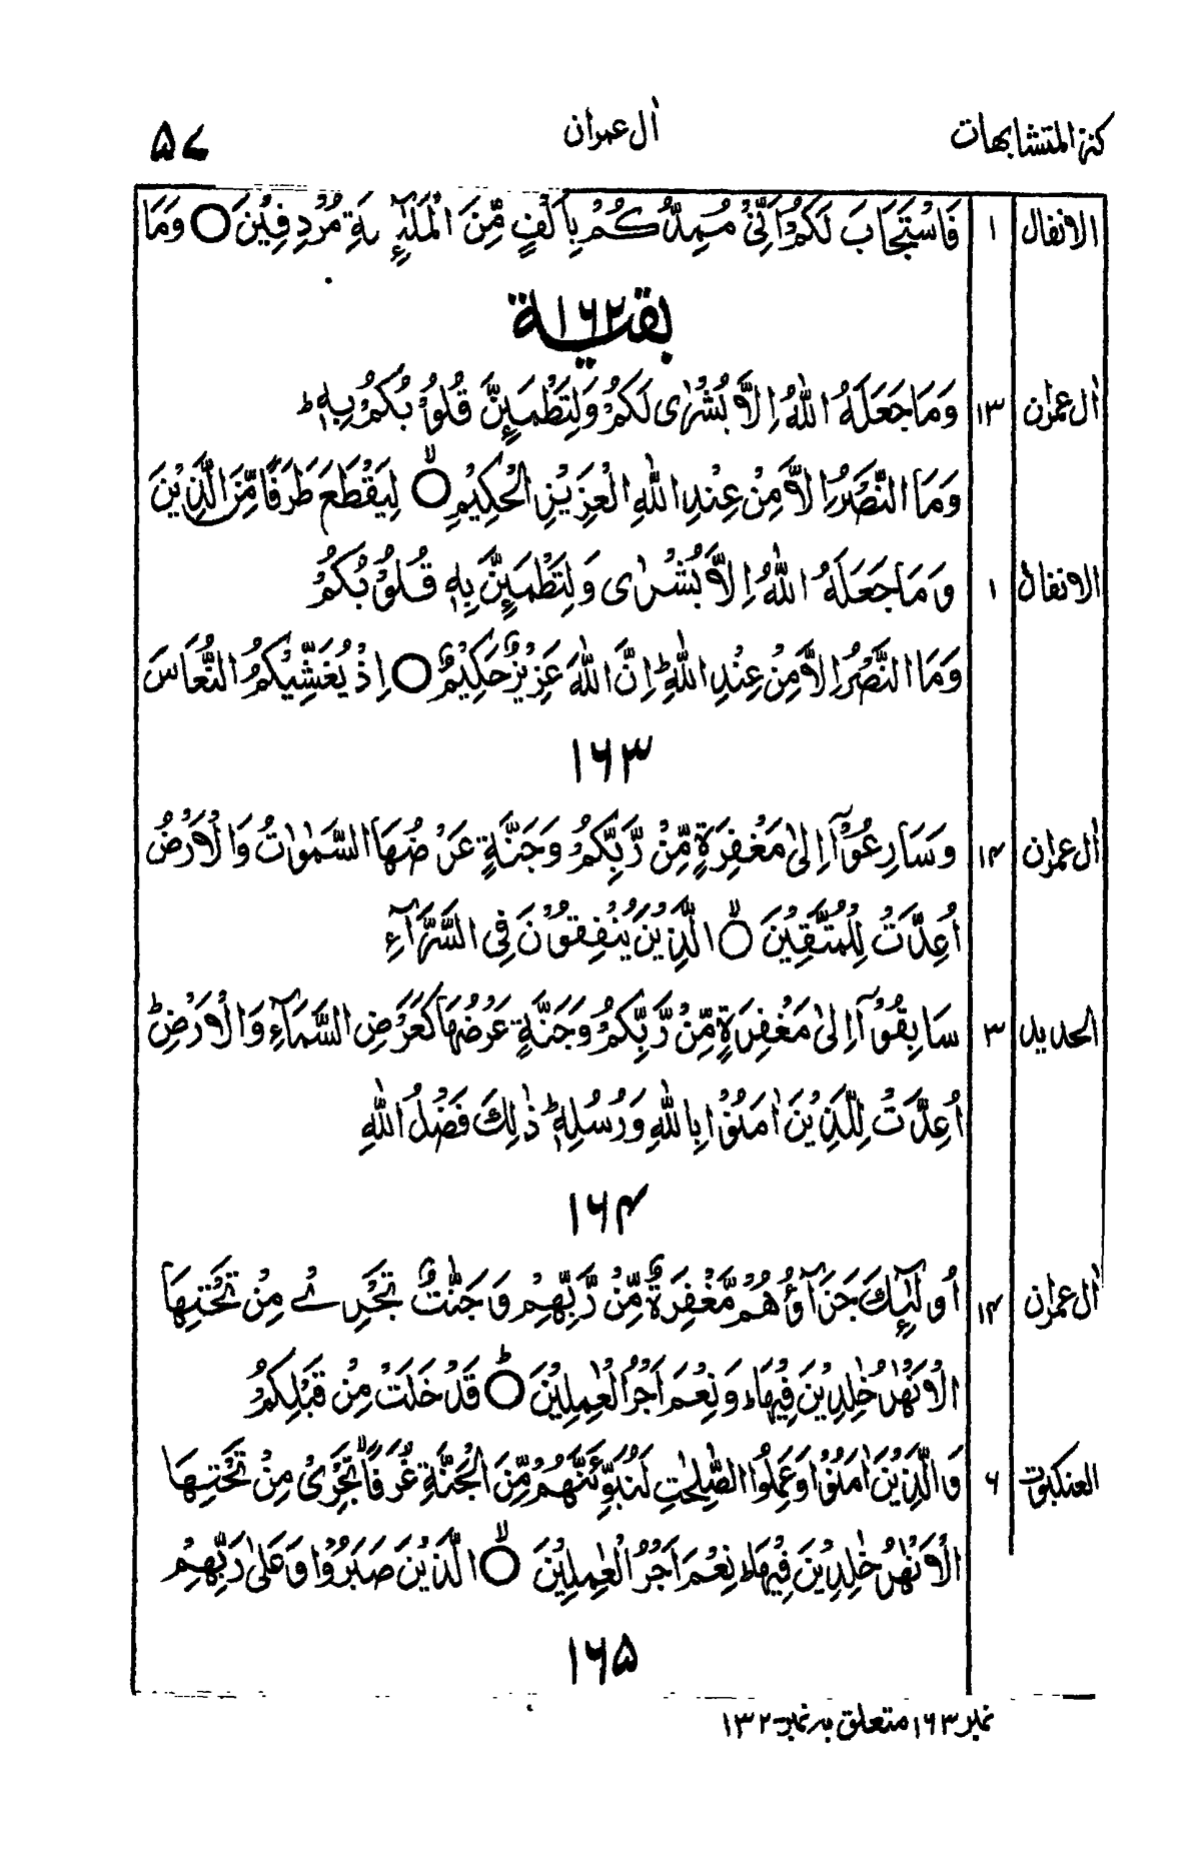 كنز المتشابهات اٰل عمران ۵۷
الانفال ۱ فَاسْتَجَابَ لَكُمْ اَنِّیْ مُمِدُّكُمْ بِاَلْفٍ مِّنَ الْمَلٰٓئِكَةِ مُرْدِفِيْنَ ○ وَمَا
بقیة ۱۶۲
اٰل عمران ۱۳ وَمَا جَعَلَهُ اللّٰهُ اِلَّا بُشْرٰی لَكُمْ وَلِتَطْمَئِنَّ قُلُوْبُكُمْ بِهٖ ؕ
وَمَا النَّصْرُ اِلَّا مِنْ عِنْدِ اللّٰهِ الْعَزِيْزِ الْحَكِيْمِ ○ۙ لِيَقْطَعَ طَرَفًا مِّنَ الَّذِيْنَ
الانفال ۱ وَمَا جَعَلَهُ اللّٰهُ اِلَّا بُشْرٰی وَلِتَطْمَئِنَّ بِهٖ قُلُوْبُكُمْ
وَمَا النَّصْرُ اِلَّا مِنْ عِنْدِ اللّٰهِ ؕ اِنَّ اللّٰهَ عَزِيْزٌ حَكِيْمٌ ○ اِذْ يُغَشِّيْكُمُ النُّعَاسَ
۱۶۳
اٰل عمران ۱۴ وَسَارِعُوْٓا اِلٰی مَغْفِرَةٍ مِّنْ رَّبِّكُمْ وَجَنَّةٍ عَرْضُهَا السَّمٰوٰتُ وَالْاَرْضُ
اُعِدَّتْ لِلْمُتَّقِيْنَ ○ۙ الَّذِيْنَ يُنْفِقُوْنَ فِی السَّرَّآءِ
الحديد ۳ سَابِقُوْٓا اِلٰی مَغْفِرَةٍ مِّنْ رَّبِّكُمْ وَجَنَّةٍ عَرْضُهَا كَعَرْضِ السَّمَآءِ وَالْاَرْضِ ؕ
اُعِدَّتْ لِلَّذِيْنَ اٰمَنُوْا بِاللّٰهِ وَرُسُلِهٖ ؕ ذٰلِكَ فَضْلُ اللّٰهِ
۱۶۴
اٰل عمران ۱۴ اُولٰٓئِكَ جَزَآؤُهُمْ مَّغْفِرَةٌ مِّنْ رَّبِّهِمْ وَجَنّٰتٌ تَجْرِیْ مِنْ تَحْتِهَا
الْاَنْهٰرُ خٰلِدِيْنَ فِيْهَا ؕ وَنِعْمَ اَجْرُ الْعٰمِلِيْنَ ○ؕ قَدْ خَلَتْ مِنْ قَبْلِكُمْ
العنكبوت ۶ وَالَّذِيْنَ اٰمَنُوْا وَعَمِلُوا الصّٰلِحٰتِ لَنُبَوِّئَنَّهُمْ مِّنَ الْجَنَّةِ غُرَفًا تَجْرِیْ مِنْ تَحْتِهَا
الْاَنْهٰرُ خٰلِدِيْنَ فِيْهَا ؕ نِعْمَ اَجْرُ الْعٰمِلِيْنَ ○ۙ الَّذِيْنَ صَبَرُوْا وَعَلٰی رَبِّهِمْ
۱۶۵
نمبر ۱۶۳ متعلق بہ نمبر ۱۳۲